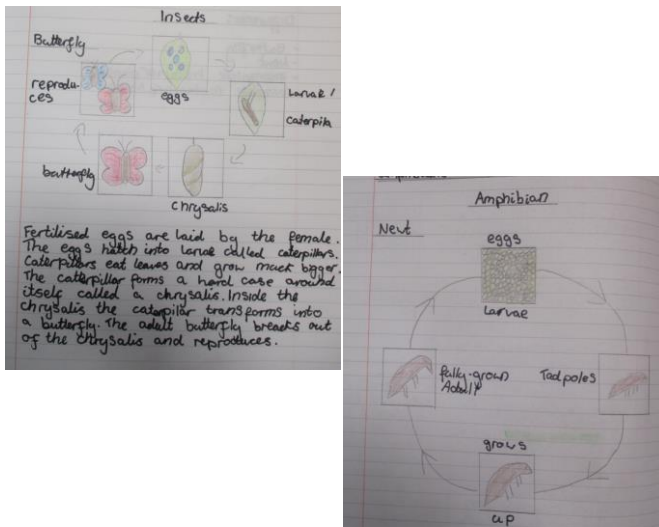 Insects
Butterfly
eggs
Larvae /
caterpila
chrysalis
butterfly
reprodu-
ces
Fertilised eggs are laid by the female.
The eggs hatch into larvae called caterpillars.
Caterpillars eat leaves and grow much bigger.
The caterpillar forms a hard case around
itself called a chrysalis. Inside the
chrysalis the caterpilar transforms into
a butterfly. The adult butterfly breaks out
of the chrysalis and reproduces.
Amphibian
Newt
eggs
larvae
Tadpoles
grows
up
fully-grown